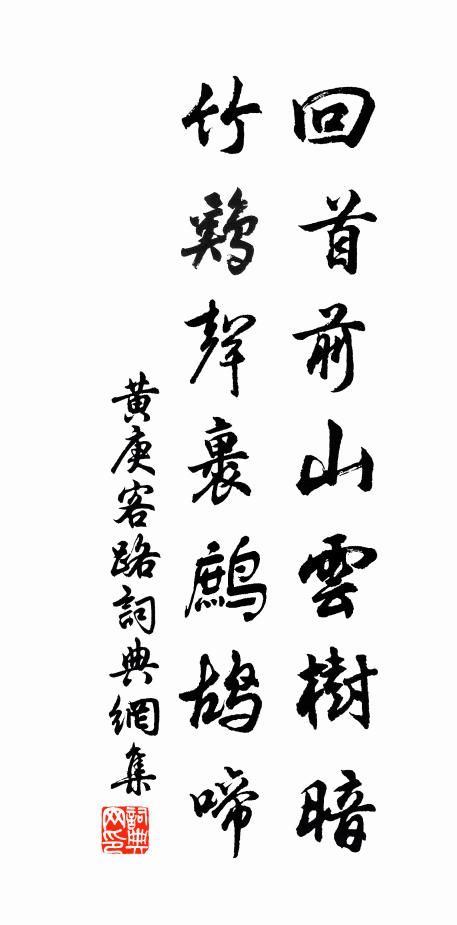 回首前山雲樹暗
竹鷄聲裏鷓鴣啼
黃庚客路詞典網集
詞典網印